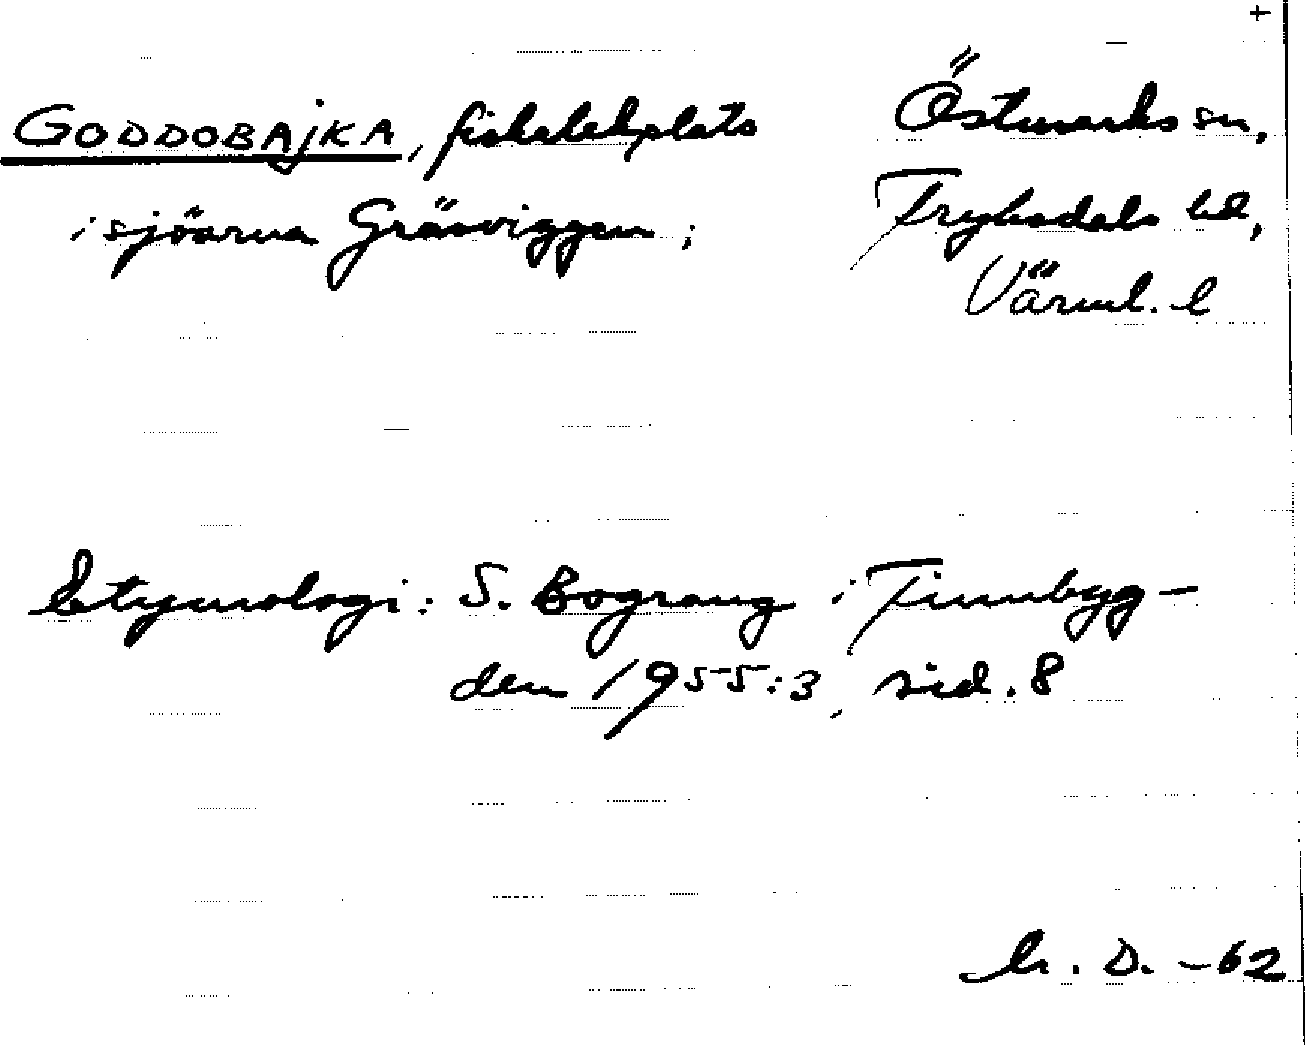 +
GODDOBAJKA, fiskelekplats
i sjöarna Gräsviggen;
Östmarks sn,
Fryksdals hd,
Värml. l
Etymologi: S. Bograng i Finnbyg-
den 1955:3, sid. 8
D. -62